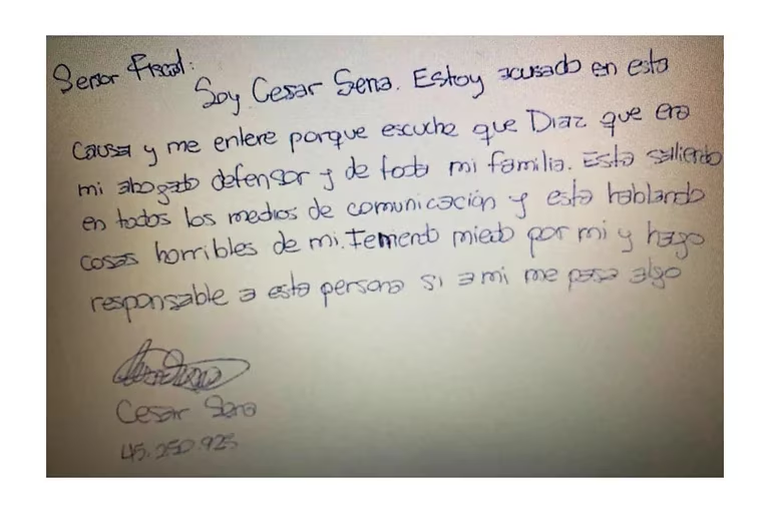 Señor Fiscal:
Soy Cesar Sena. Estoy acusado en esta
causa y me entere porque escuche que Diaz que era
mi abogado defensor y de toda mi familia. Esta salliendo
en todos los medios de comunicación y esta hablando
cosas horribles de mi. miedo por mi y hago
responsable a esta persona si a mi me pasa algo
Cesar Sena
45.250.925